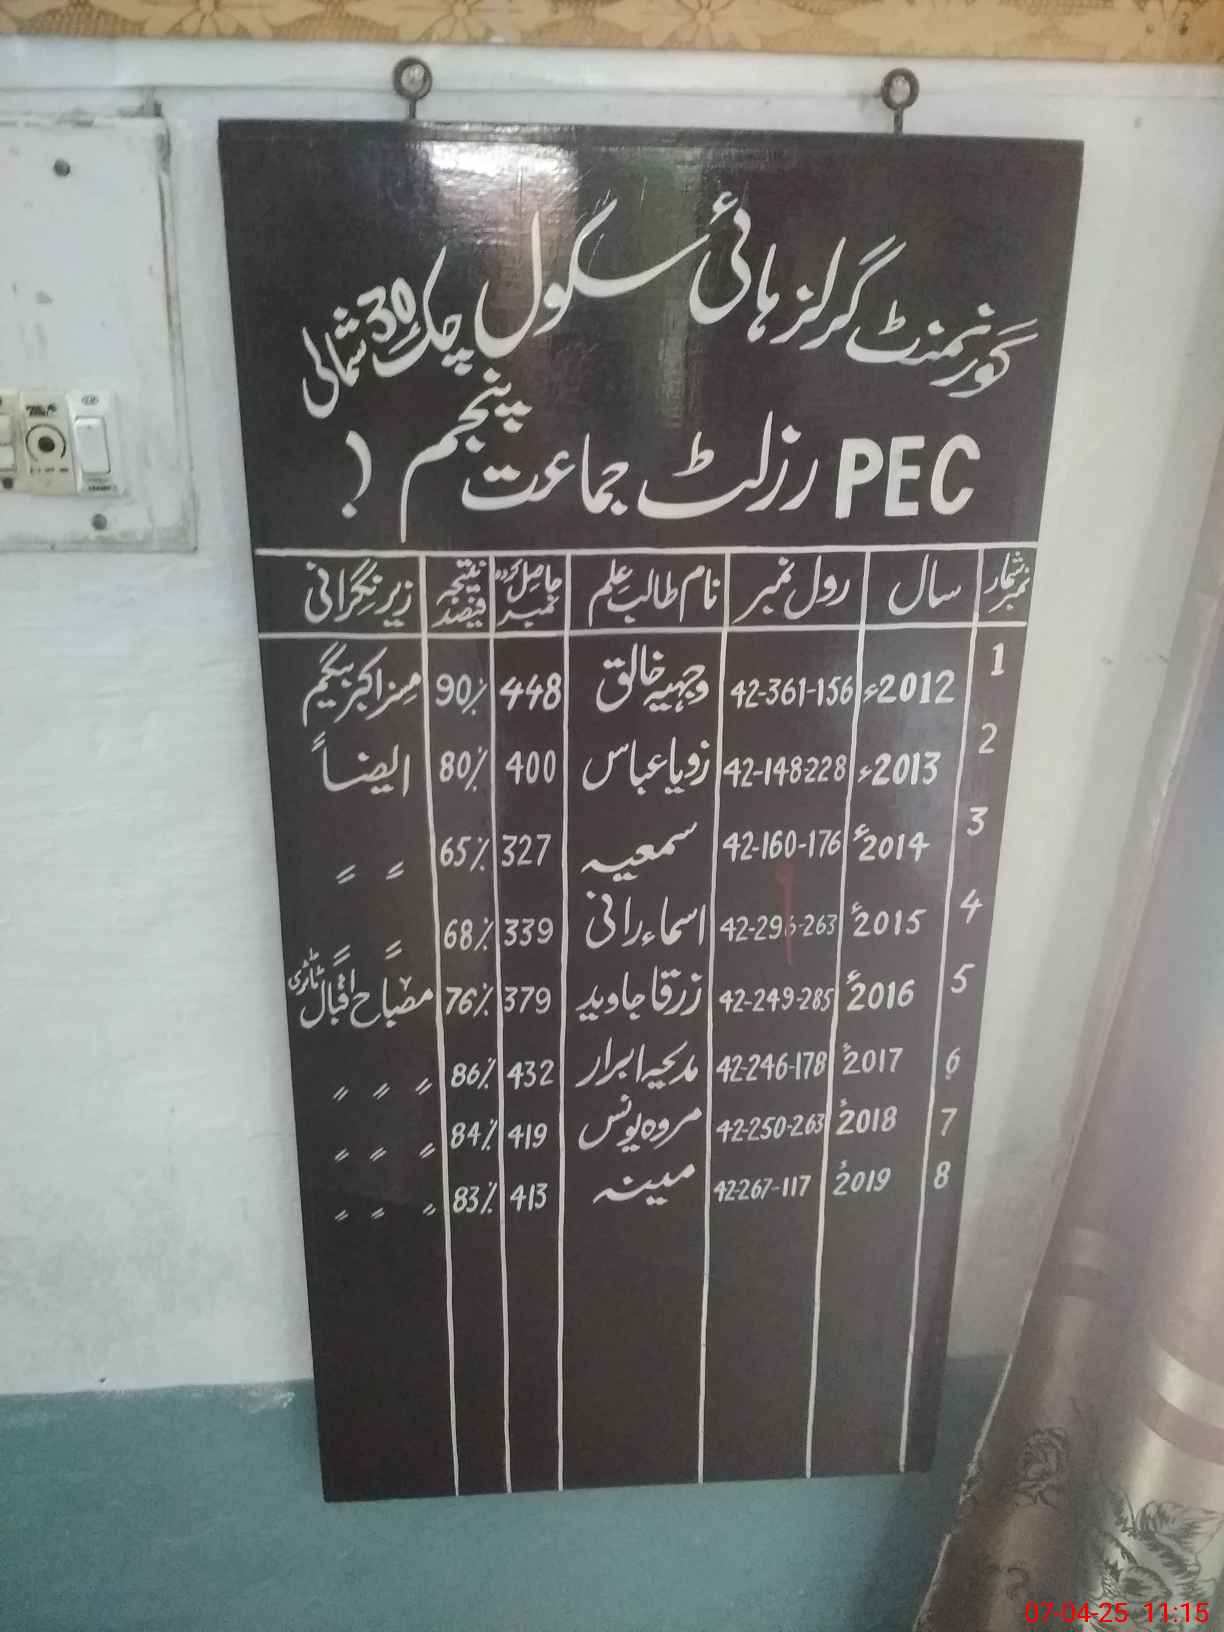 گورنمنٹ گرلز ہائی سکول چک 30 شمالی
PEC رزلٹ جماعت پنجم (
نمبر شمار سال رول نمبر نام طالب علم حاصل کردہ نمبر نتیجہ فیصد زیر نگرانی
1 2012ء 42-361-156 وجہیہ خالق 448 90٪ مسز اکبر بیگم
2 2013ء 42-148-228 زویا عباس 400 80٪ ایضاً
3 2014ء 42-160-176 سمعیہ 327 65٪ 〃 〃
4 2015ء 42-296-263 اسماء رانی 339 68٪ 〃 〃
5 2016ء 42-249-285 زرقا جاوید 379 76٪ مصباح اقبال
6 2017ء 42-246-178 مدیحہ ابرار 432 86٪ 〃 〃 〃
7 2018ء 42-250-263 مروہ یونس 419 84٪ 〃 〃 〃
8 2019ء 42-267-117 مینہ 413 83٪ 〃 〃 〃
07-04-25 11:15